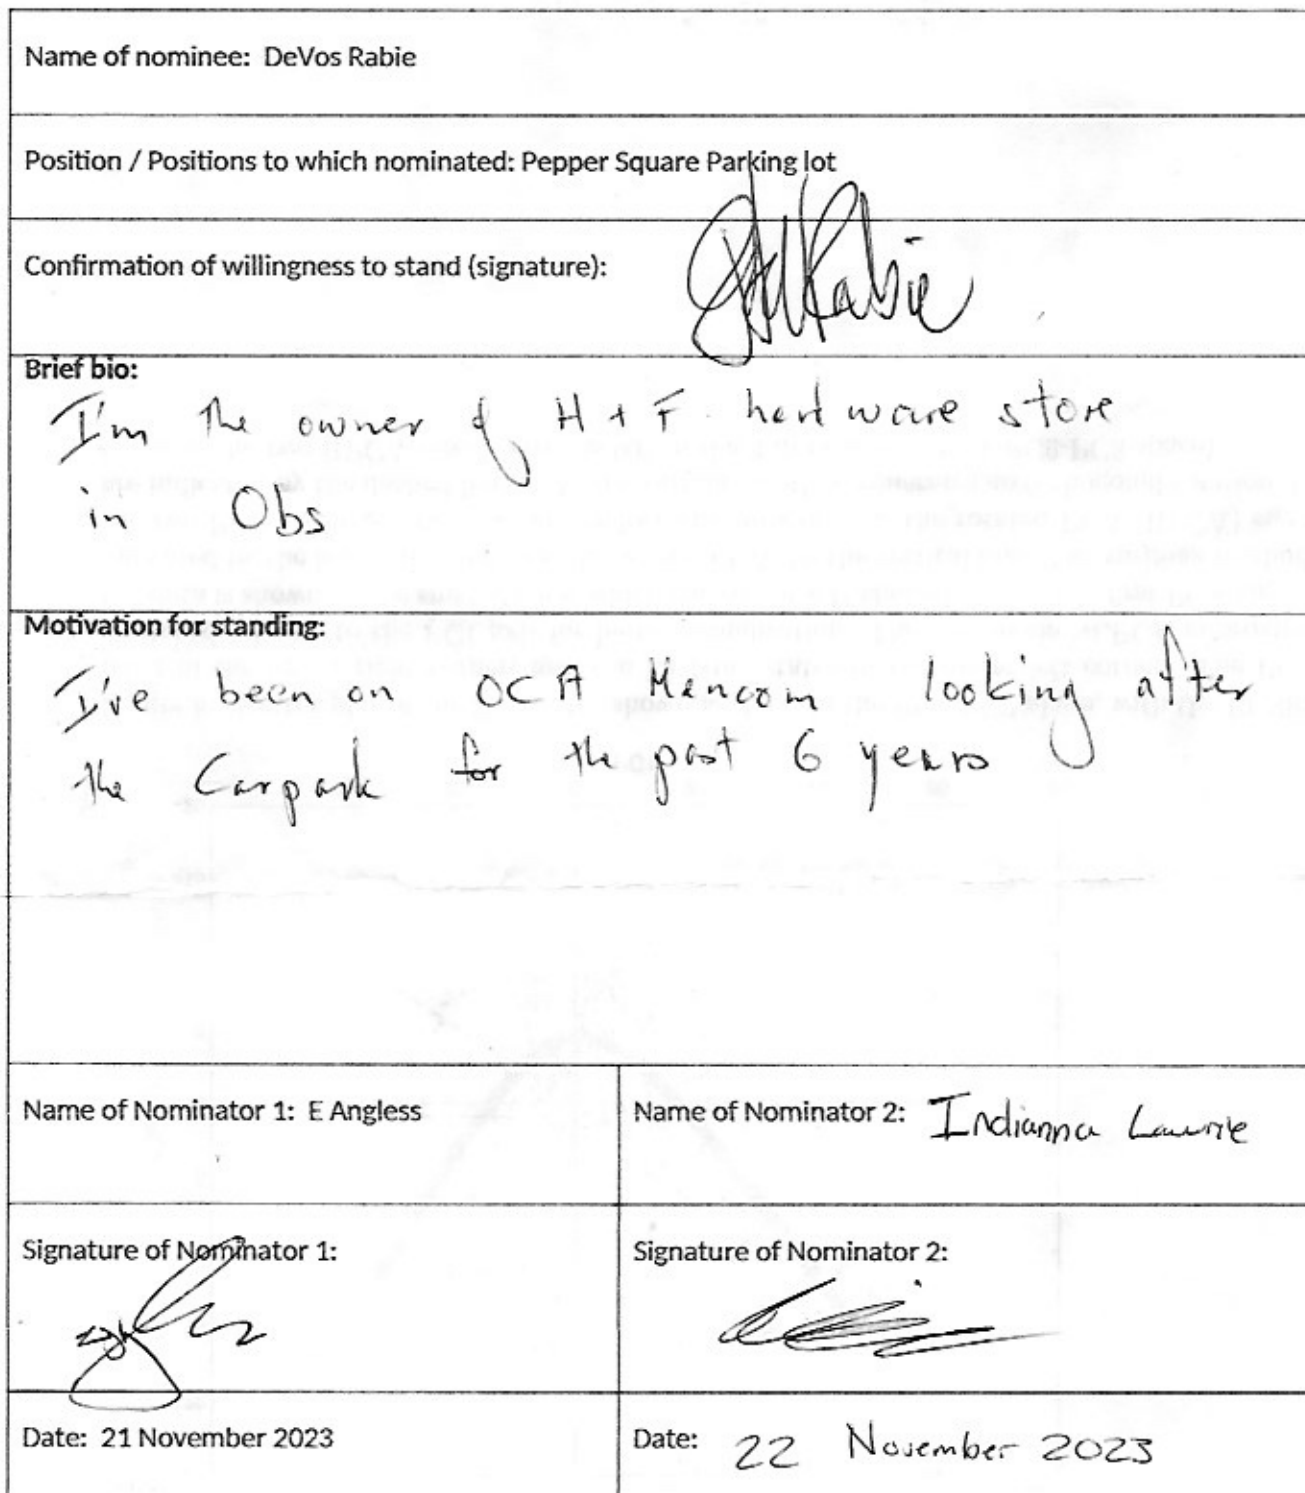 Name of nominee: DeVos Rabie
Position / Positions to which nominated: Pepper Square Parking lot
Confirmation of willingness to stand (signature): Rabie
Brief bio:
I'm the owner of H + F hardware store
in Obs
Motivation for standing:
I've been on OCA Mancom looking after
the Carpark for the past 6 years
Name of Nominator 1: E Angless
Name of Nominator 2: Indianna Lawrie
Signature of Nominator 1:
Signature of Nominator 2:
Date: 21 November 2023
Date: 22 November 2023